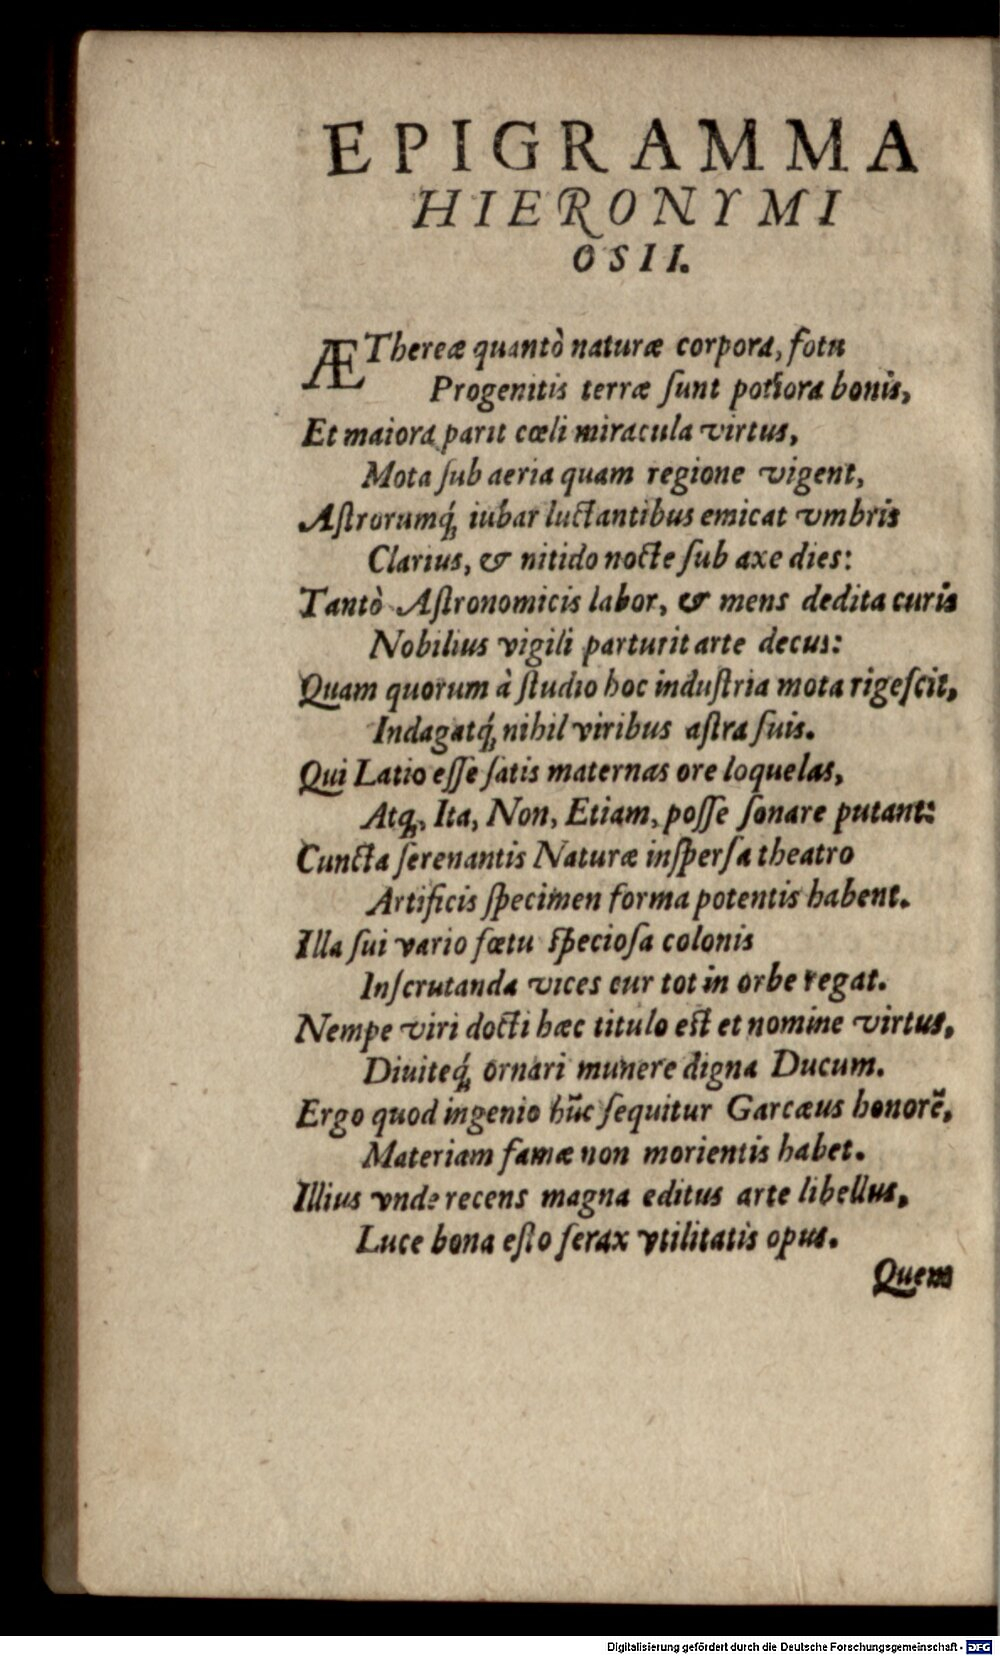 EPIGRAMMA
HIERONYMI
OSII.
ÆThereæ quantò naturæ corpora, fotu
Progenitis terræ ſunt potiora bonis,
Et maiora parit cœli miracula virtus,
Mota ſub aeria quam regione vigent,
Aſtrorumq́; iubar luctantibus emicat vmbris
Clarius, & nitido nocte ſub axe dies:
Tantò Aſtronomicis labor, & mens dedita curis
Nobilius vigili parturit arte decus:
Quam quorum à ſtudio hoc induſtria mota rigeſcit,
Indagatq́; nihil viribus aſtra ſuis.
Qui Latio eſſe ſatis maternas ore loquelas,
Atq;, Ita, Non, Etiam, poſſe ſonare putant:
Cuncta ſerenantis Naturæ inſperſa theatro
Artificis ſpecimen forma potentis habent.
Illa ſui vario fœtu ſpecioſa colonis
Inſcrutanda vices cur tot in orbe regat.
Nempe viri docti hæc titulo eſt et nomine virtus,
Diuiteq́; ornari munere digna Ducum.
Ergo quod ingenio hūc ſequitur Garcæus honorē,
Materiam famæ non morientis habet.
Illius vnde recens magna editus arte libellus,
Luce bona eſto ferax vtilitatis opus.
Quem
Digitalisierung gefördert durch die Deutsche Forschungsgemeinschaft - DFG